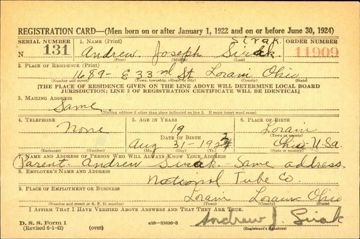 REGISTRATION CARD—(Men born on or after January 1, 1922 and on or before June 30, 1924)
SERIAL NUMBER 1. NAME (Print) Sirak ORDER NUMBER
N 131 Andrew Joseph Sirak 11909
2. PLACE OF RESIDENCE (Print)
1689 - E 33rd St Lorain Ohio
[THE PLACE OF RESIDENCE GIVEN ON THE LINE ABOVE WILL DETERMINE LOCAL BOARD
JURISDICTION; LINE 2 OF REGISTRATION CERTIFICATE WILL BE IDENTICAL]
3. MAILING ADDRESS
Same
4. TELEPHONE 5. AGE IN YEARS 6. PLACE OF BIRTH
None 19 Lorain
DATE OF BIRTH
Aug 31 - 192 Ohio USA
7. NAME AND ADDRESS OF PERSON WHO WILL ALWAYS KNOW YOUR ADDRESS
Parent Andrew Sirak - Same address
8. EMPLOYER'S NAME AND ADDRESS
National Tube Co.
9. PLACE OF EMPLOYMENT OR BUSINESS
Lorain Lorain Ohio
I AFFIRM THAT I HAVE VERIFIED ABOVE ANSWERS AND THAT THEY ARE TRUE.
D. S. S. Form 1
(Revised 6-1-42) (over) Andrew J. Sirak
(Registrant's signature)